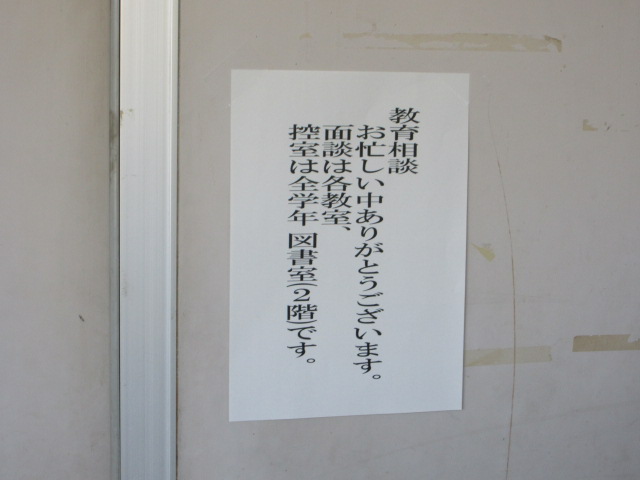 教育相談
お忙しい中ありがとうございます。
面談は各教室、
控室は全学年 図書室(2階)です。